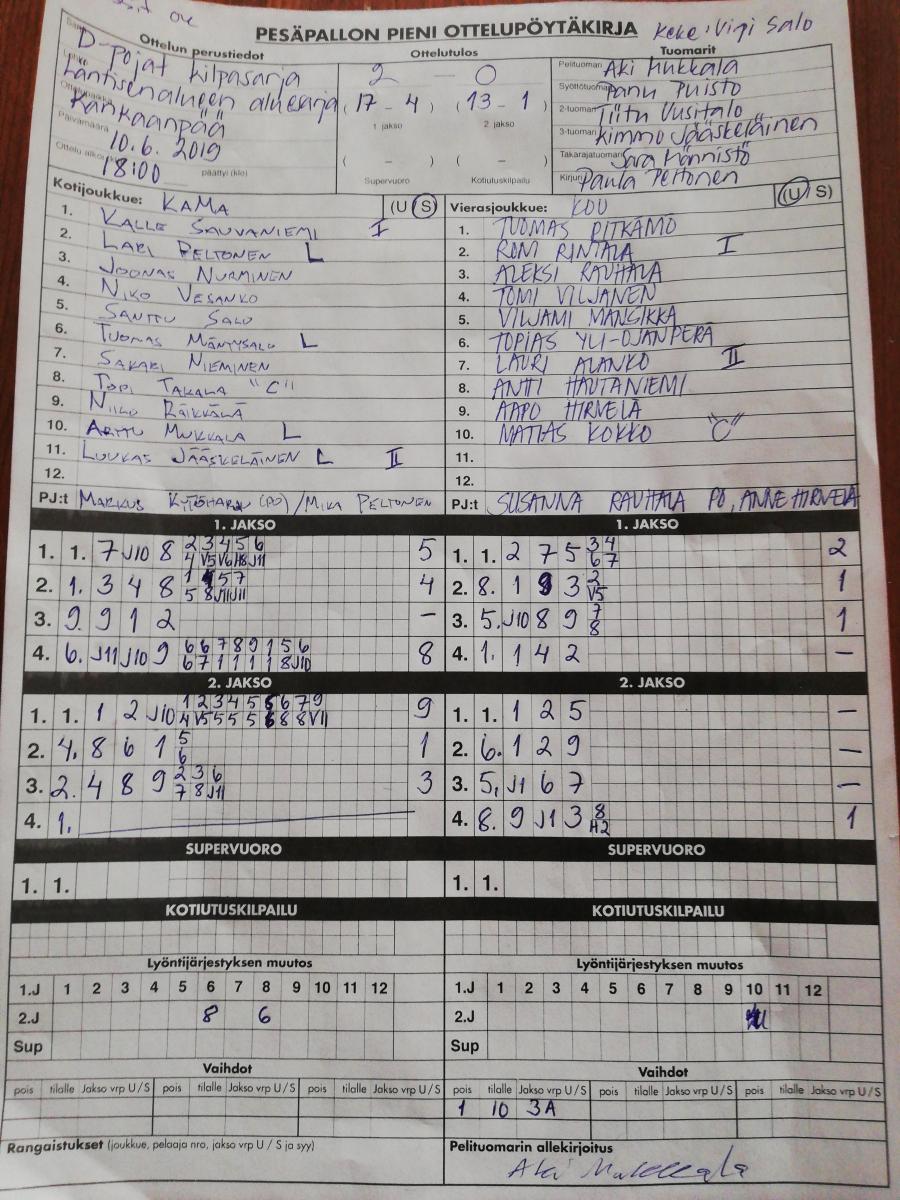 ok
PESÄPALLON PIENI OTTELUPÖYTÄKIRJA Keke: Virpi Salo
Ottelun perustiedot
D-pojat kilpasarja
Läntisen alueen aluesarja
Kankaanpää
Päivämäärä 10.6. 2019
Ottelu alkoi 18:00 päättyi (klo)
Ottelutulos
2 - 0
(17 - 4) (13 - 1)
1 jakso 2. jakso
( - ) ( - )
Supervuoro Kotiutuskilpailu
Tuomarit
Pelituomari Aki Mukkala
Syöttötuomari Panu Puisto
2-tuomari Tiitu Uusitalo
3-tuomari Kimmo Jääskeläinen
Takarajatuomari Sara Männistö
Kirjuri Paula Peltonen
Kotijoukkue: KAMA (U S)
1. KALLE SAUVANIEMI I
2. LARI PELTONEN L
3. JOONAS NURMINEN
4. NIKO VESANKO
5. SANTTU SALO
6. TUOMAS MÄNTYSALO L
7. SAKARI NIEMINEN
8. TOPI TAKALA "C"
9. NIILO RÄIKKÄLÄ
10. ARTTU MUKKALA L
11. LUUKAS JÄÄSKELÄINEN L II
12.
PJ:t MARKUS (PJ) / MIKA PELTONEN
Vierasjoukkue: KOU (U S)
1. TUOMAS PITKÄMÖ
2. RONI RINTALA I
3. ALEKSI RAUHALA
4. TOMI VILJANEN
5. VILJAMI MANSIKKA
6. TOPIAS YLI-OJANPERÄ
7. LAURI ALANKO II
8. ANTTI HAUTANIEMI
9. AAPO HIRVELÄ
10. MATIAS KOKKO "C"
11.
12.
PJ:t SUSANNA RAUHALA PJ, ANNE HIRVELÄ
1. JAKSO
1. 1. 7 J10 8 2 3 4 5 6 5
4 V5 V6 H8 J11
2. 1. 3 4 8 1 5 7 4
5 8 J11 J11
3. 9. 9 1 2 –
4. 6. J11 J10 9 6 6 7 8 9 1 5 6 8
6 7 1 1 1 1 8 J10
1. JAKSO
1. 1. 2 7 5 3 4 2
6 7
2. 8. 1 9 3 2 1
V5
3. 5. J10 8 9 7 1
8
4. 1. 1 4 2 –
2. JAKSO
1. 1. 1 2 J10 1 2 3 4 5 6 6 7 9 9
4 V5 5 5 5 6 8 8 V11
2. 4. 8 6 1 5 1
6
3. 2. 4 8 9 2 3 6 3
7 8 J11
4. 1.
2. JAKSO
1. 1. 1 2 5 –
2. 6. 1 2 9 –
3. 5. J1 6 7 –
4. 8. 9 J1 3 8 1
H2
SUPERVUORO
1. 1.
SUPERVUORO
1. 1.
KOTIUTUSKILPAILU
KOTIUTUSKILPAILU
Lyöntijärjestyksen muutos
1.J 1 2 3 4 5 6 7 8 9 10 11 12
2.J 8 6
Sup
Lyöntijärjestyksen muutos
1.J 1 2 3 4 5 6 7 8 9 10 11 12
2.J
Sup
Vaihdot
pois tilalle Jakso vrp U / S pois tilalle Jakso vrp U / S pois tilalle Jakso vrp U / S
Vaihdot
pois tilalle Jakso vrp U / S pois tilalle Jakso vrp U / S pois tilalle Jakso vrp U / S
1 10 3A
Rangaistukset (joukkue, pelaaja nro, jakso vrp U / S ja syy)
Pelituomarin allekirjoitus
Aki Mukkala